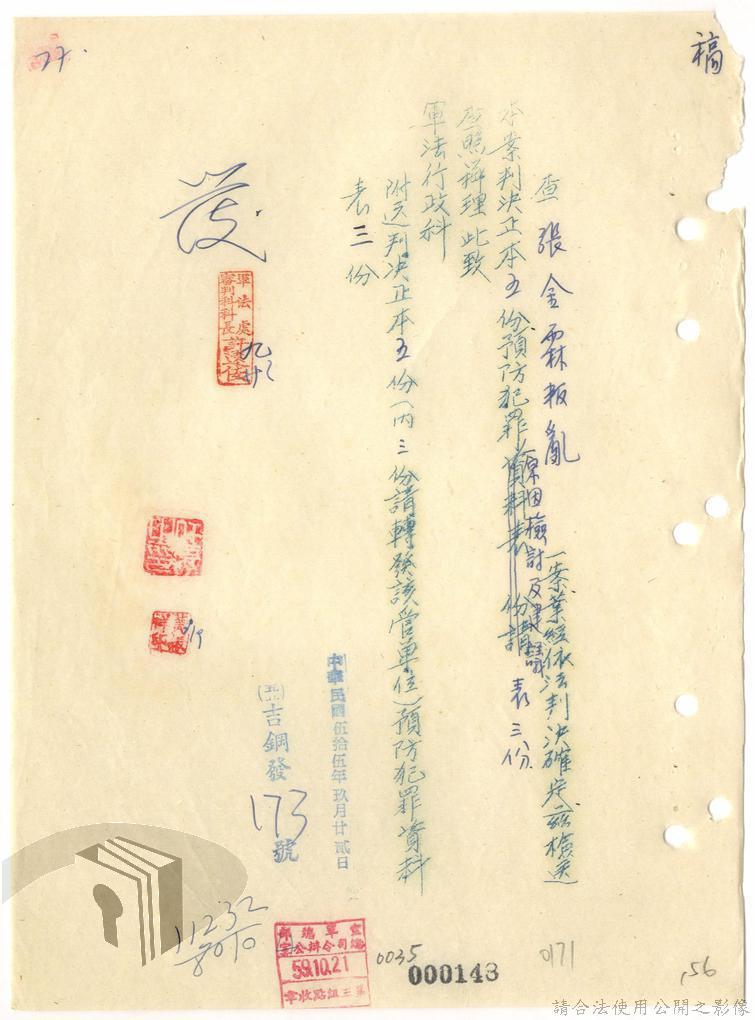 稿
查張金霖叛亂一案業經依法判決確定茲檢送
本案判決正本五份預防犯罪資料表 份請
原因檢討及建議表三份
查照辦理此致
軍法行政科
附送判決正本五份(內三份請轉發該管單位)預防犯罪資料
表三份
發
軍法處
審判科科長
中華民國伍拾伍年玖月廿貳日
吉鋼發
173
號
27.
11232
8010
59.10.21
0035
000143
0171
56
請合法使用公開之影像